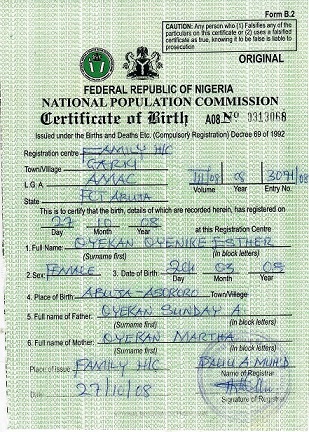 Form B.2
CAUTION: Any person who (1) Falsifies any of the
particulars on this certificate or (2) uses a falsified
certificate as true, knowing it to be false is liable to
prosecution
ORIGINAL
FEDERAL REPUBLIC OF NIGERIA
NATIONAL POPULATION COMMISSION
Certificate of Birth A08 No 0313068
Issued under the Births and Deaths Etc. (Compulsory) Registration) Decree 69 of 1992
Registration centre FAMILY H/C
Town/Village GARKI
L. G. A AMAC III/08 08 3091/08
Volume Year Entry No.
State FCT ABUJA
This is to certify that the birth, details of which are recorded herein, has registered on
27 10 08 at this Registration Centre
Day Month Year
1. Full Name: OYEKAN OYENIKE ESTHER
(Surname first) (In block letters)
2. Sex: FEMALE 3. Date of Birth: 03 08
Day Month Year
4. Place of Birth: ABUJA - ASOKORO Town/Village
5. Full name of Father: OYEKAN SUNDAY A.
(Surname first) (In block letters)
6. Full name of Mother: OYEKAN MARTHA
(Surname first) (In block letters)
Place of issue FAMILY H/C
Name of Registrar
Date 27/10/08
Signature of Registrar